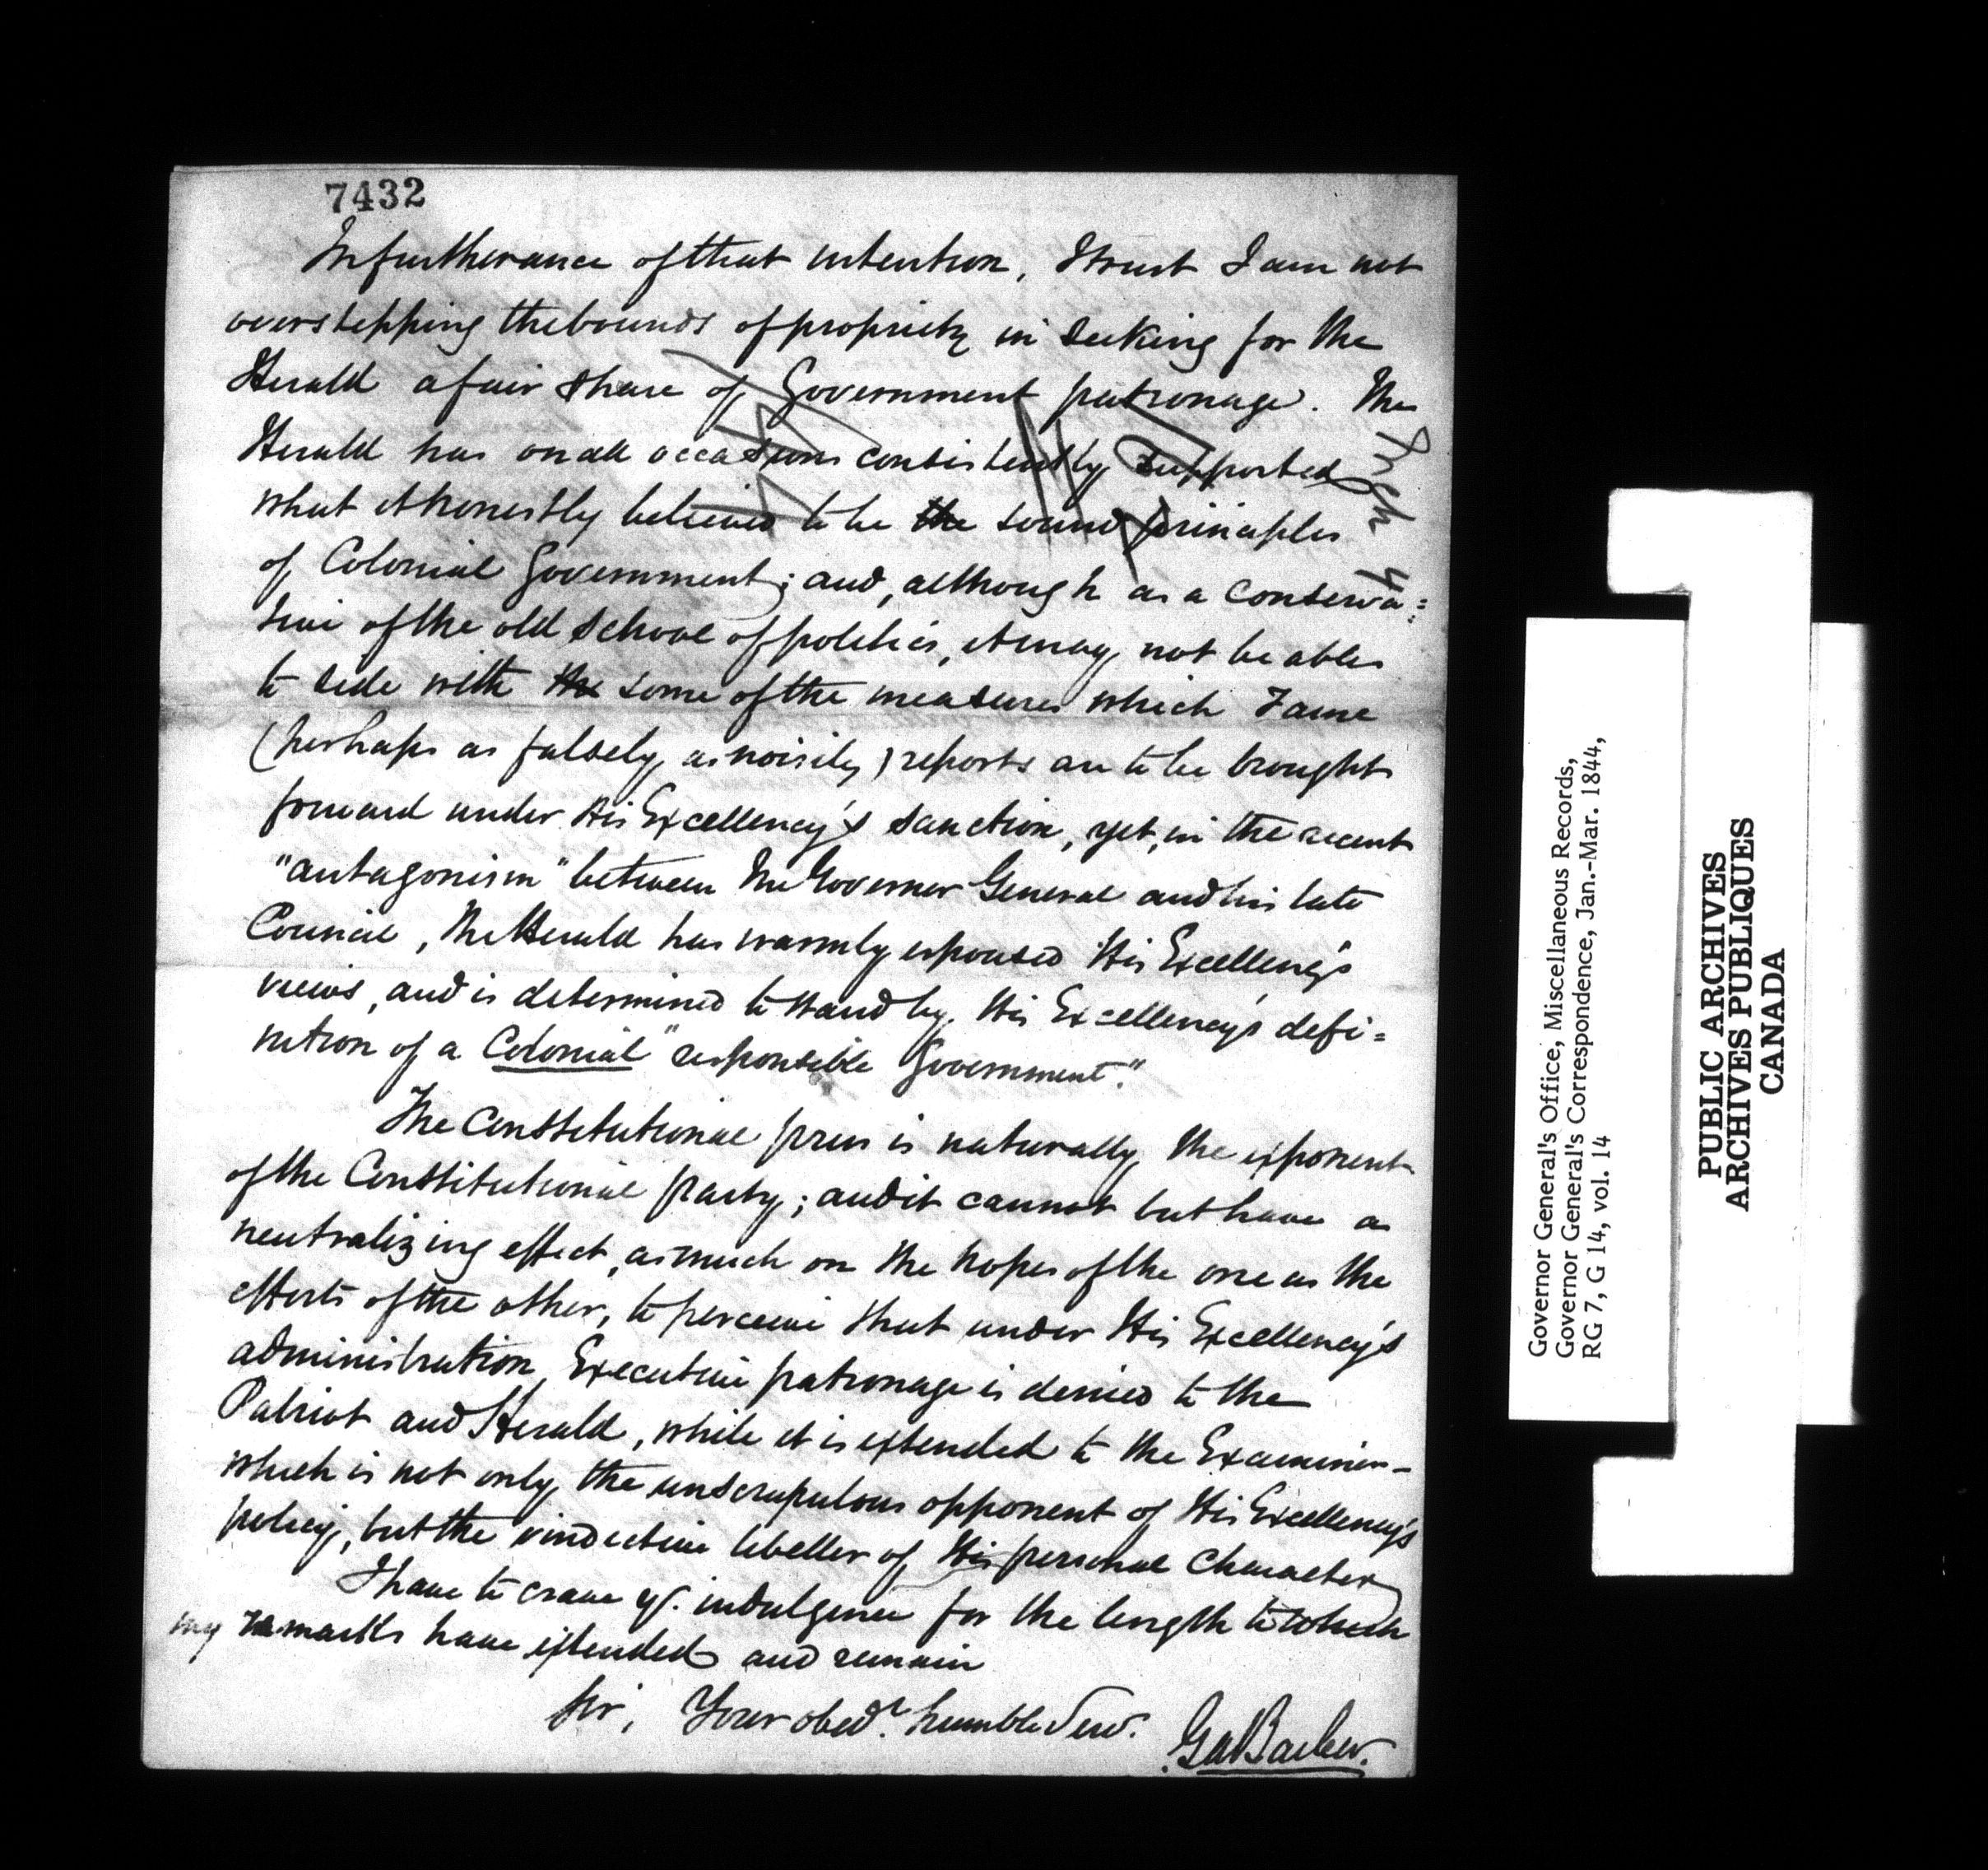 7432
In furtherance of that intention, I trust I am not
overstepping the bounds of propriety in seeking for the
Herald a fair share of Government patronage. The
Herald has on all occasions consistently supported
what it honestly believes to be the sound principles
of Colonial Government; and, although as a conserva=
tive of the old school of politics, it may not be able
to side with the some of the measures which Fame
(perhaps as falsely as noisily) reports are to be brought
forward under His Excellency's sanction, yet, in the recent
"antagonism" between The Governor General and his late
Council, The Herald has warmly espoused His Excellency's
views, and is determined to stand by His Excellency's defi=
nition of a Colonial "responsible Government."
The Constitutional press is naturally the exponent
of the Constitutional party; and it cannot but have a
neutralizing effect, as much on the hopes of the one as the
efforts of the other, to perceive that under His Excellency's
administration, Executive patronage is denied to the
Patriot and Herald, while it is extended to the Examiner -
which is not only the unscrupulous opponent of His Excellency's
policy, but the vindictive libeller of His personal character
I have to crave yr. indulgence for the length to which
my remarks have extended and remain
Sir, Your obedt. humble Serv.
Ged Barker.
Governor General's Office, Miscellaneous Records,
Governor General's Correspondence, Jan.-Mar. 1844,
RG 7, G 14, vol. 14
PUBLIC ARCHIVES
ARCHIVES PUBLIQUES
CANADA